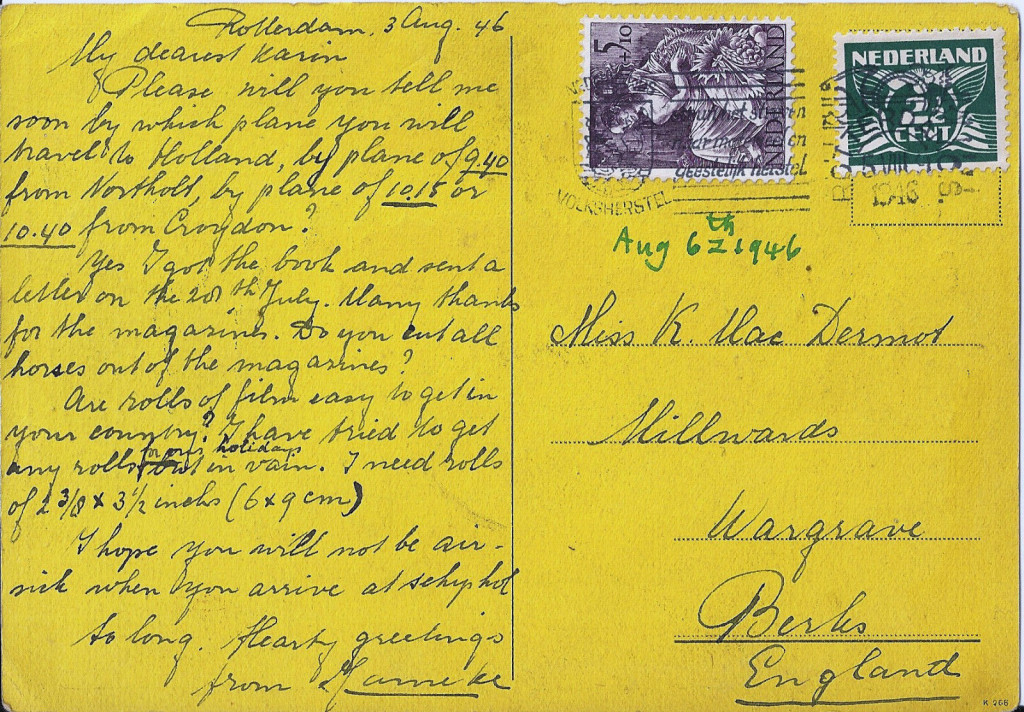 Rotterdam, 3 Aug. 46
My dearest Karin
Please will you tell me
soon by which plane you will
travel to Holland, by plane of 9.40
from Northolt, by plane of 10.15 or
10.40 from Croydon?
Yes I got the book and sent a
letter on the 28th July. Many thanks
for the magazines. Do you cut all
horses out of the magazines?
Are rolls of film easy to get in
your country? I have tried to get
for our holidays
any rolls but in vain. I need rolls
of 2 3/8 x 3 1/2 inch (6 x 9 cm)
I hope you will not be air-
sick when you arrive at Schiphol
So long. Hearty greetings
from Hanneke
5+2½
NEDERLAND
NEDERLAND
2½
CENT
geestelijk herstel
VOLKSHERSTEL
VIII
1946
Aug 6th 1946
Miss K. Mac Dermot
Millwards
Wargrave
Berks
England
K 266